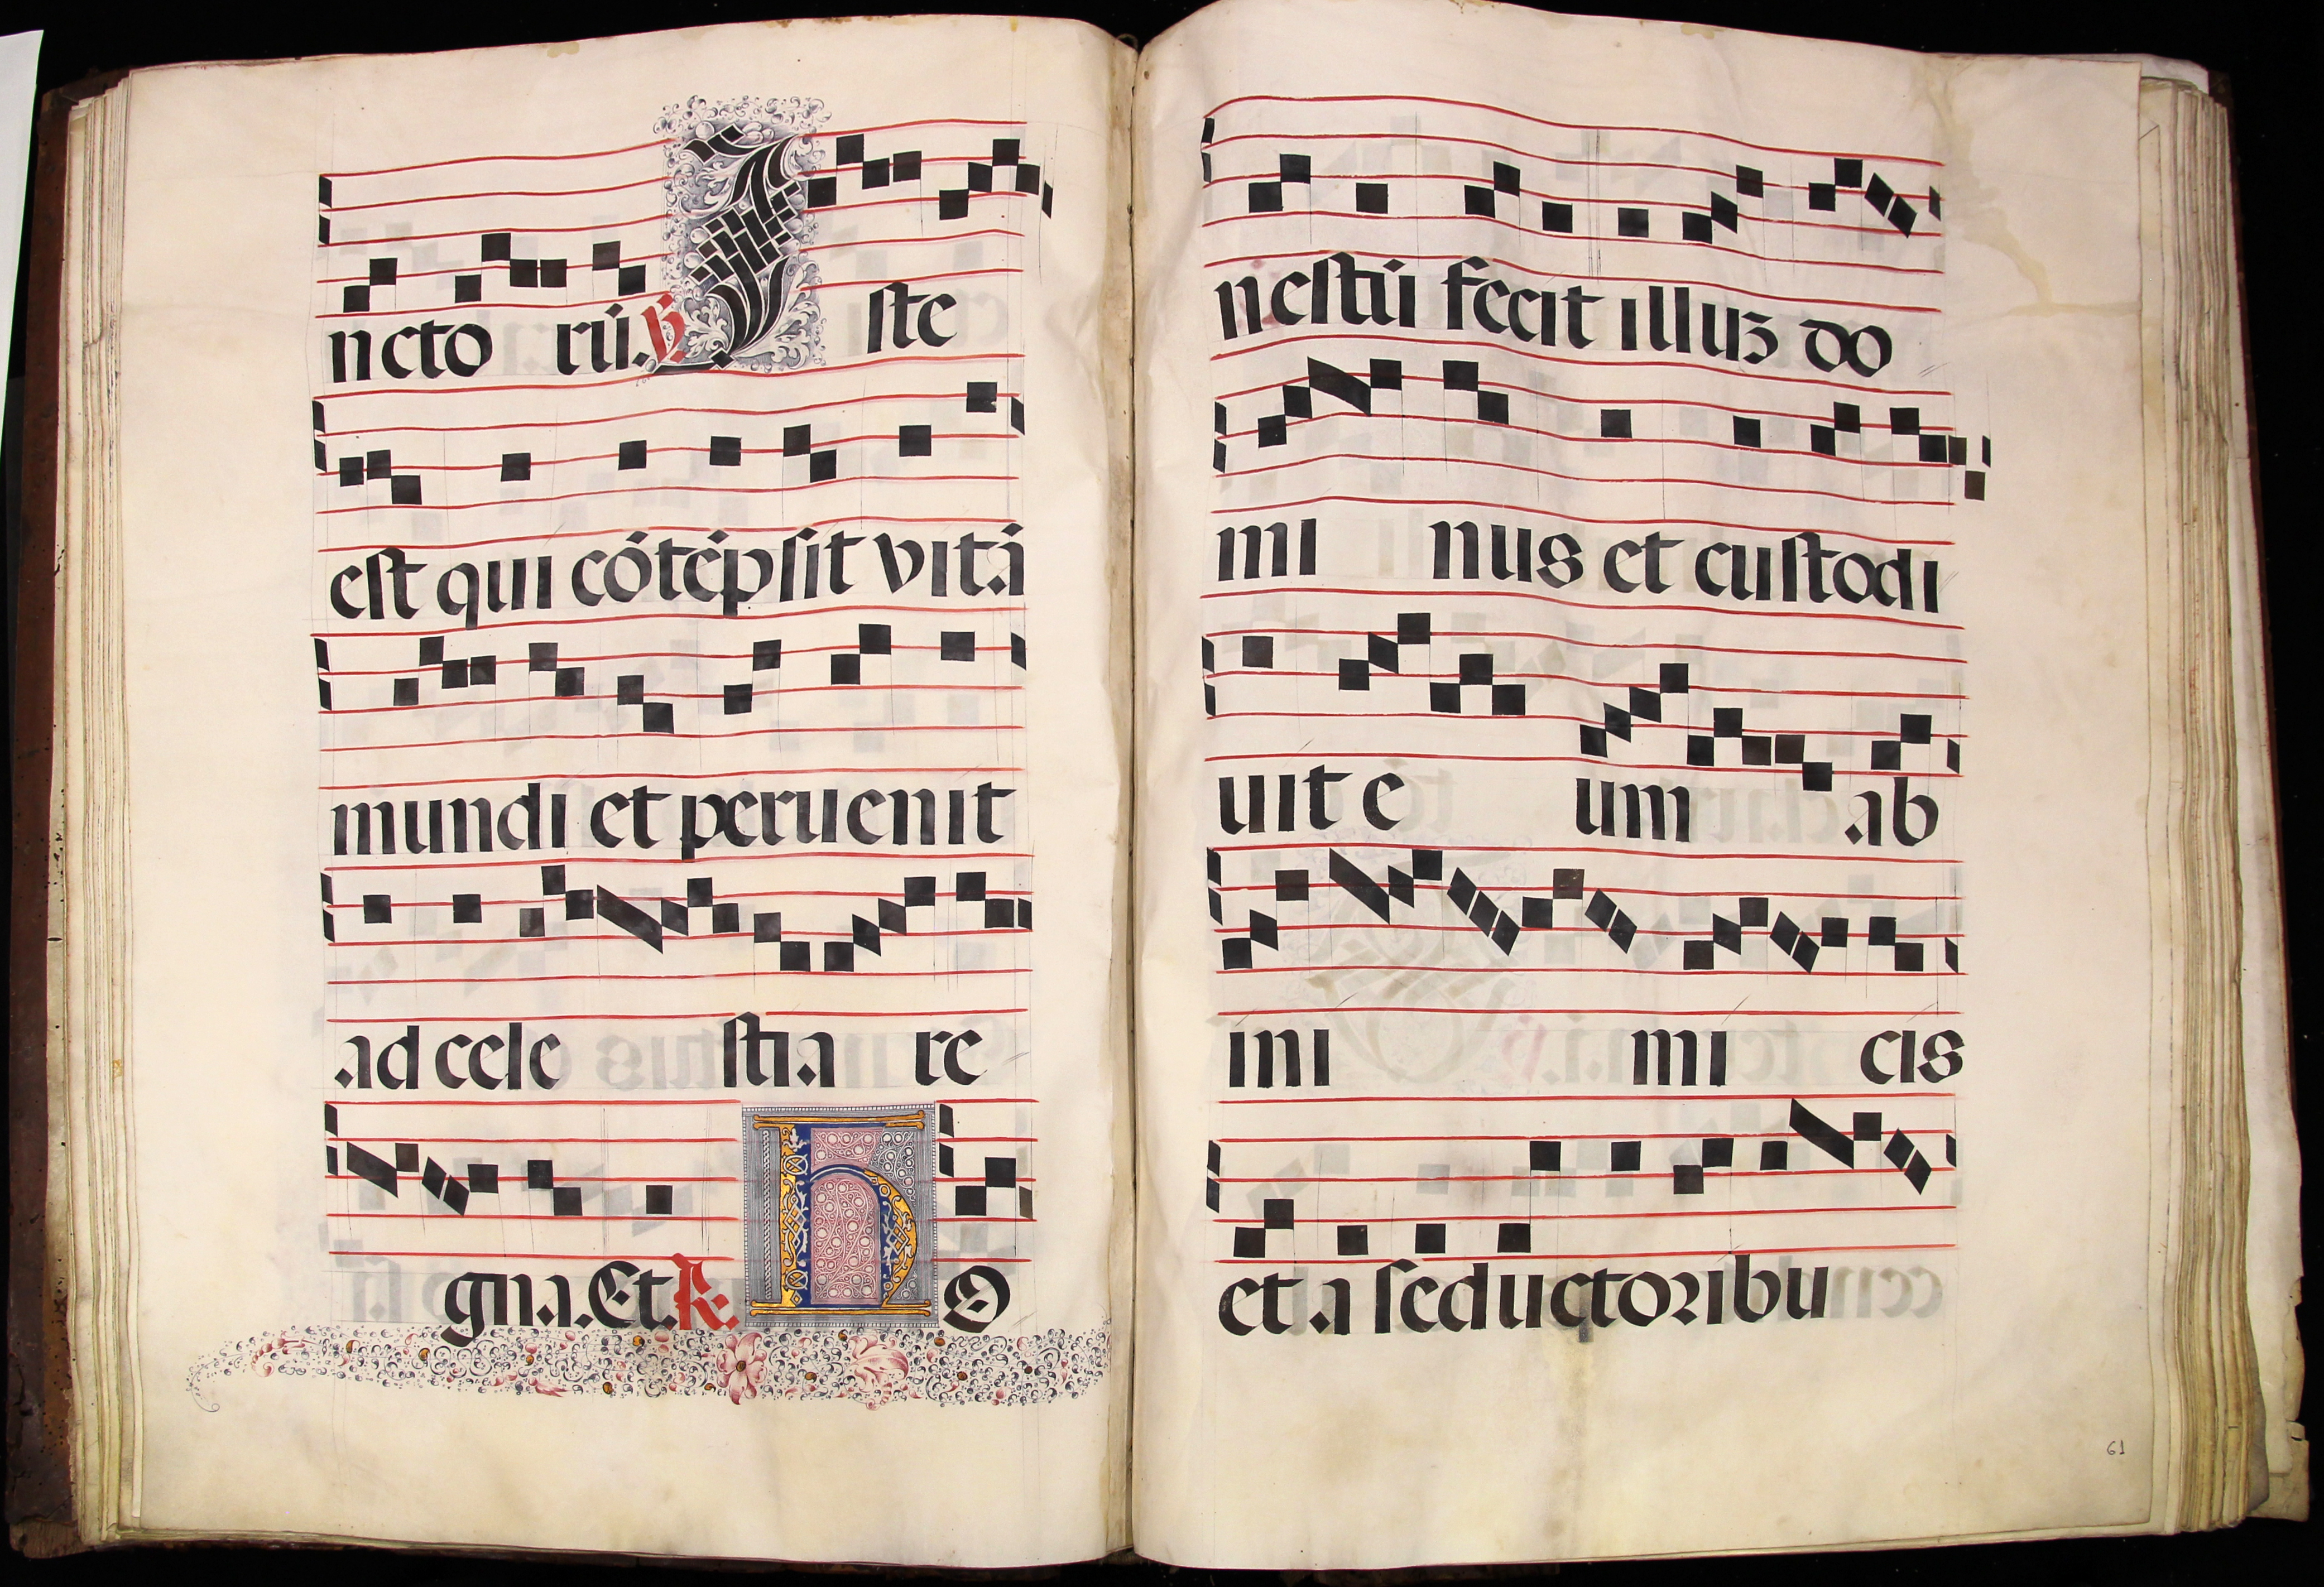 ncto rú. ℣ Iste
est qui cótépsit vitá
mundi et peruenit
ad cele stia re
gna. Et. ℟. ho
nestú fecit illuꝫ do
mi nus et custodi
uit e um ab
ini mi cis
et a seductoribu
61